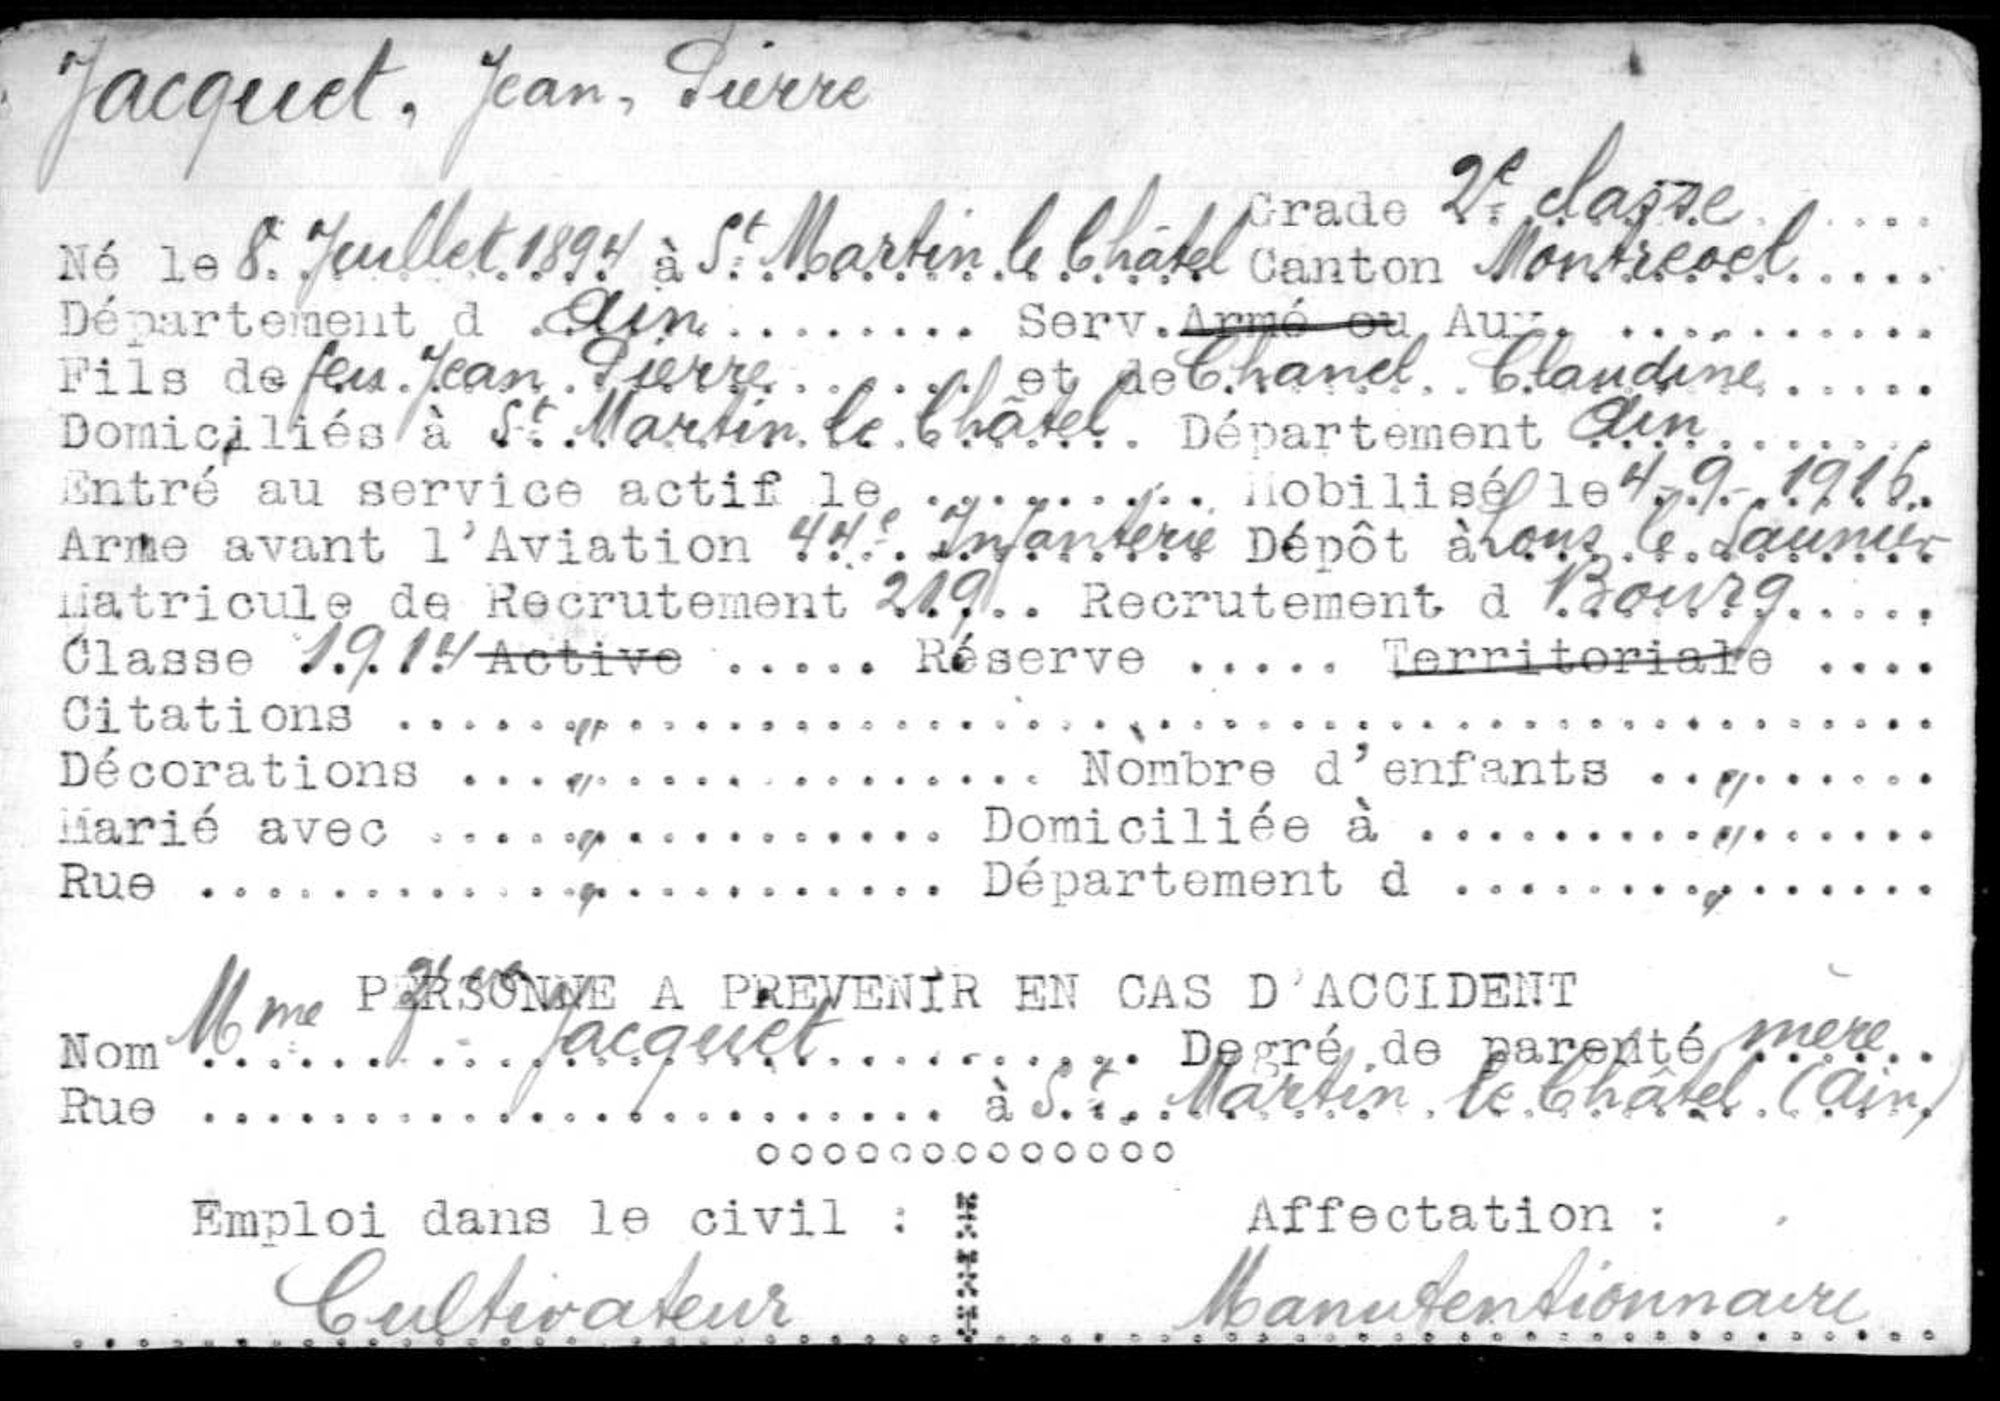 Jacquet, Jean, Pierre
Grade 2e classe
Né le 8 Juillet 1894 à St Martin le Châtel Canton Montrevel
Département d Ain Serv. Armé ou Aux.
Fils de feu Jean Pierre et de Chanel Claudine
Domiciliés à St Martin le Châtel. Département Ain
Entré au service actif le ........ Mobilisé le 4-9-1916.
Arme avant l'Aviation 44e Infanterie Dépôt à Lons le Saunier
Matricule de Recrutement 219 Recrutement d Bourg
Classe 1914 Active ..... Réserve ..... Territoriale ....
Citations ..... " .....
Décorations ..... " ..... Nombre d'enfants ... " .....
Marié avec ..... " ..... Domiciliée à ..... " .....
Rue ..... " ..... Département d ..... " .....
PERSONNE A PREVENIR EN CAS D'ACCIDENT
Nom Mme Vve Jacquet Degré de parenté mère
Rue ..... à St Martin le Châtel (Ain)
ooooooooooooo
Emploi dans le civil : Affectation :
Cultivateur Manutentionnaire